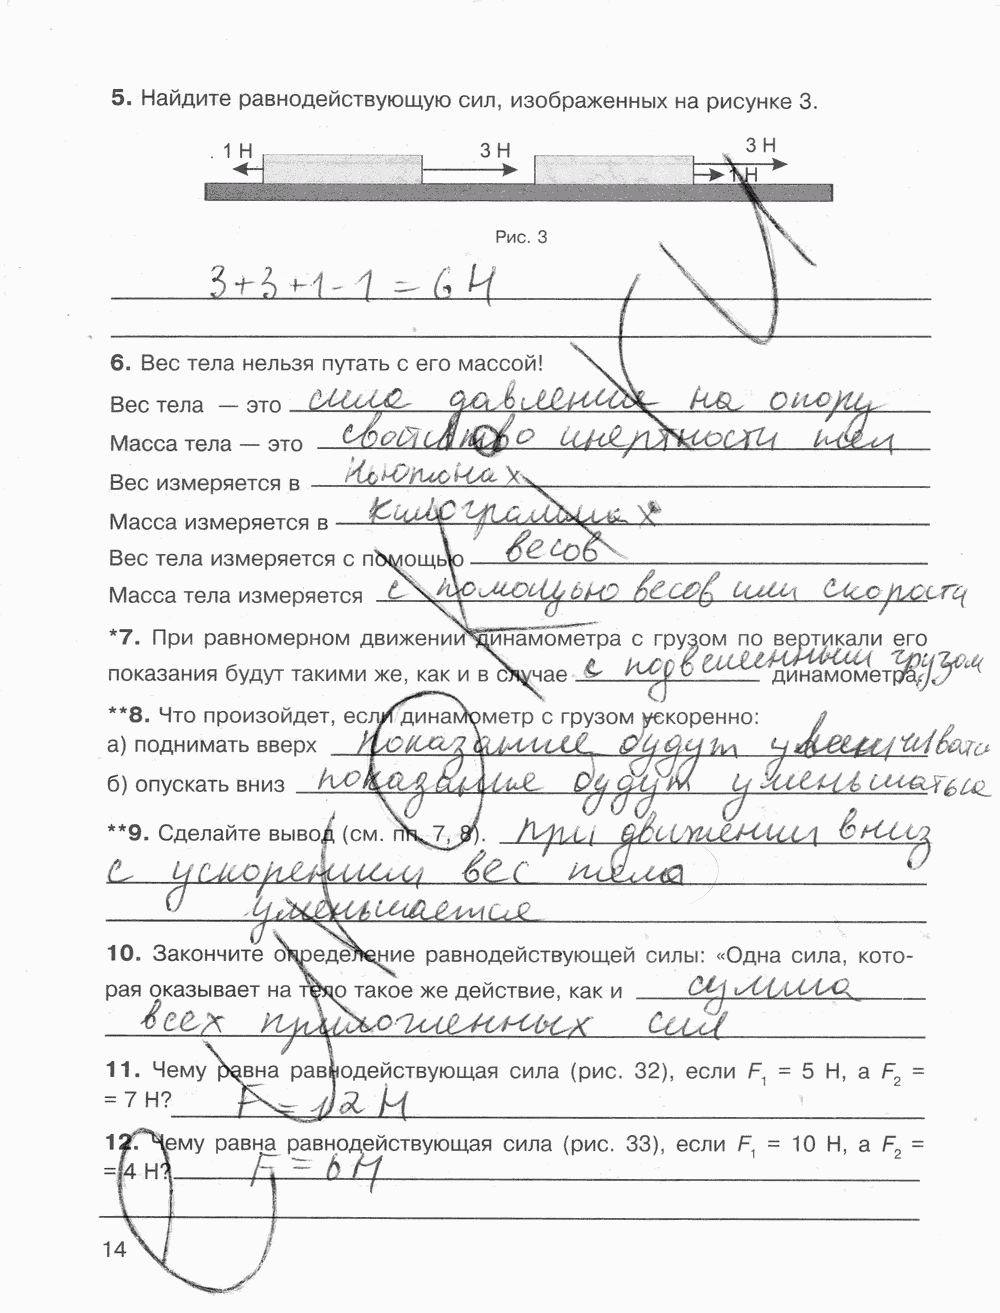 5. Найдите равнодействующую сил, изображенных на рисунке 3.
1 Н 3 Н 3 Н
1 Н
Рис. 3
3+3+1-1=6 Н
6. Вес тела нельзя путать с его массой!
Вес тела — это сила давления на опору
Масса тела — это свойство инертности тел
Вес измеряется в Ньютонах
Масса измеряется в килограммах
Вес тела измеряется с помощью весов
Масса тела измеряется с помощью весов или скорости
*7. При равномерном движении динамометра с грузом по вертикали его
показания будут такими же, как и в случае с подвешенным грузом динамометра.
**8. Что произойдет, если динамометр с грузом ускоренно:
а) поднимать вверх показание будут увеличивать
б) опускать вниз показание будут уменьшаться
**9. Сделайте вывод (см. пп. 7, 8). при движении вниз
с ускорением вес тела
уменьшается
10. Закончите определение равнодействующей силы: «Одна сила, кото-
рая оказывает на тело такое же действие, как и сумма
всех приложенных сил
11. Чему равна равнодействующая сила (рис. 32), если F₁ = 5 Н, а F₂ =
= 7 Н? F = 12 Н
12. Чему равна равнодействующая сила (рис. 33), если F₁ = 10 Н, а F₂ =
= 4 Н? F = 6 Н
14